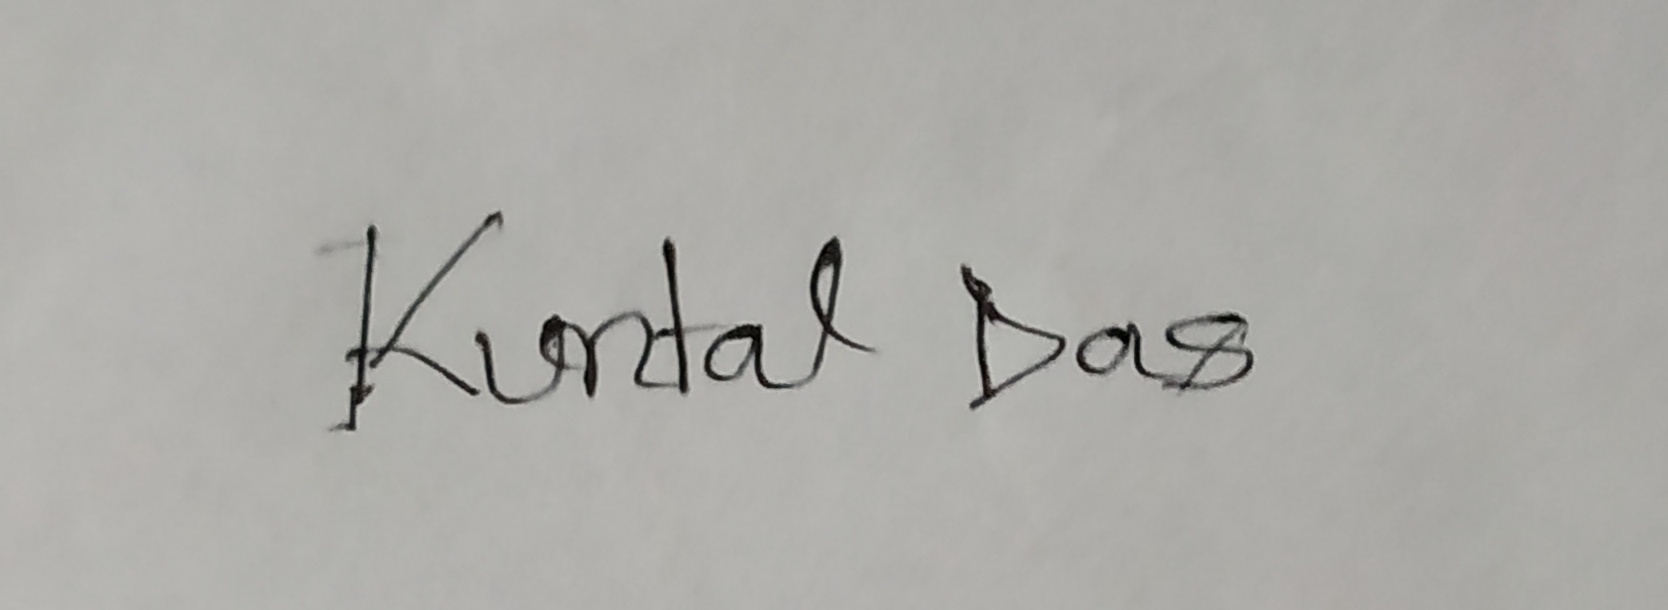 Kuntal Das